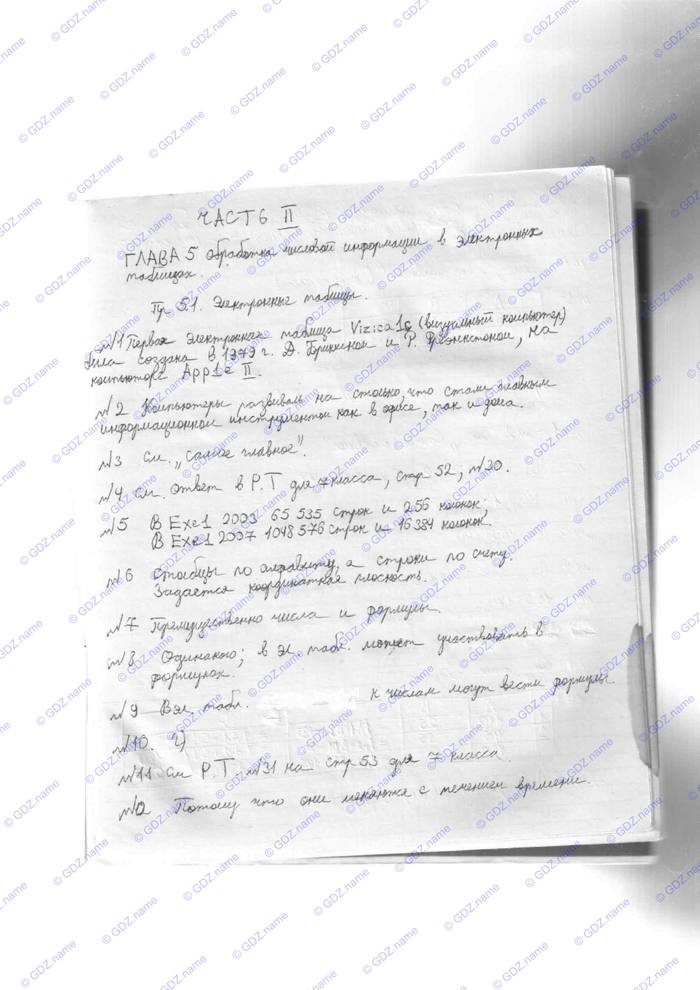 ЧАСТЬ II
ГЛАВА 5 Обработка числовой информации в электронных
таблицах.
Пр 5.1. Электронные таблицы.
№1 Первая электронная таблица Vizica1c (визуальный компьютер)
была создана в 1979 г. Д. Бриклиной и Р. Фрэнкстоной, на
компьюторе App1e II.
№2 Компьютеры развивали на столько, что стали главным
информационной инструментом как в офисе, так и дома.
№3 см. „Самое главное".
№4 см. ответ в Р.Т для 7 класса, стр 52, №20.
№5 В Exe1 2003 65 535 строк и 256 колонок;
В Exe1 2007 1048 576 строк и 16 384 колонок.
№6 Столбцы по алфавиту, а строки по счету.
Задается координатная плоскость.
№7 Преимущественно числа и формулы.
№8 Одинаково; в эл. табл. может участвовать в
формулах.
№9 В эл. табл. к числам могут вести формулы
№10. 4)
№11 см Р.Т. №31 на стр 53 для 7 класса.
Потому что они меняются с течением времени.
© GDZ.name